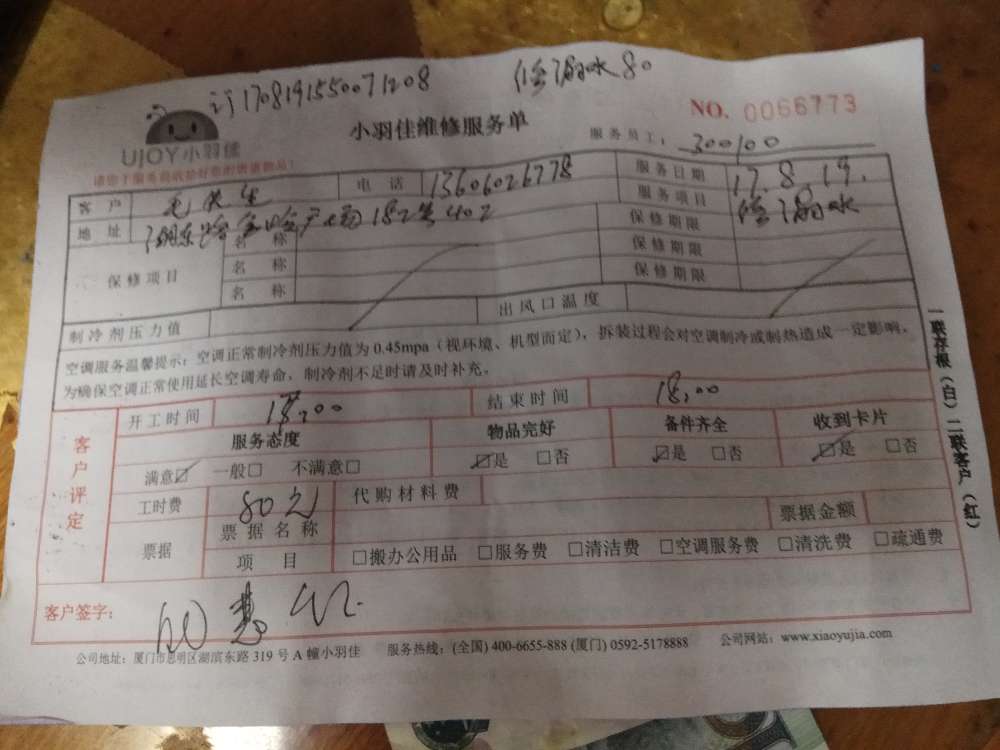 订1708191550071208 修漏水80
UJOY小羽佳
小羽佳维修服务单
NO. 0066773
服务员工: 300100
客户 毛先生 电话 13606026778 服务日期 17.8.19.
地址 182 402 服务项目 修漏水
保修项目 名称 保修期限
名称 保修期限
名称 保修期限
制冷剂压力值 出风口温度
空调服务温馨提示:空调正常制冷剂压力值为 0.45mpa(视环境、机型而定),拆装过程会对空调制冷或制热造成一定影响,
为确保空调正常使用延长空调寿命,制冷剂不足时请及时补充。
开工时间 结束时间 18:00
客户评定
服务态度 物品完好 备件齐全 收到卡片
满意☑ 一般□ 不满意□ ☑是 □否 ☑是 □否 ☑是 □否
工时费 80元 代购材料费
票据 票据名称 票据金额
项目 □搬办公用品 □服务费 □清洁费 □空调服务费 □清洗费 □疏通费
客户签字:
公司地址:厦门市思明区湖滨东路 319 号 A 幢小羽佳 服务热线:(全国) 400-6655-888 (厦门) 0592-5178888 公司网站:www.xiaoyujia.com
一联存根(白)二联客户(红)